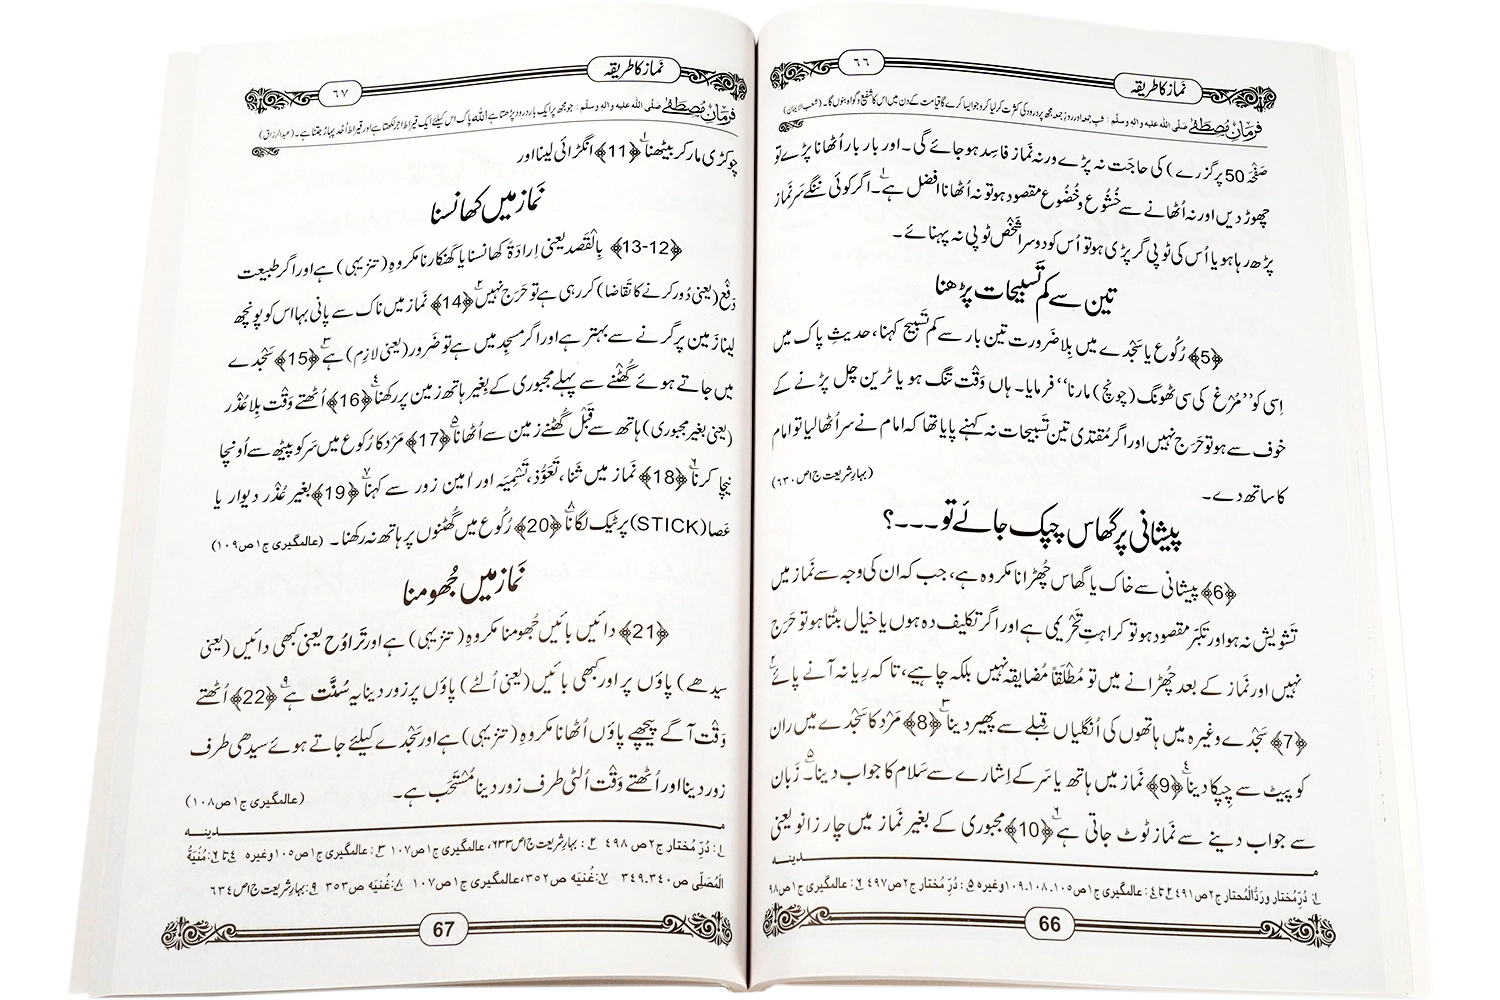 نَماز کا طریقہ
٦٦
فرمانِ مُصطَفٰے صَلَّی اللہ علیہ واٰلہٖ وسلَّم : شبِ جمعہ اور روزِ جمعہ مجھ پر درود کی کثرت کر لیا کرو جو ایسا کرے گا قیامت کے دن میں اس کا شفیع و گواہ بنوں گا۔ (شعب الایمان)
صَفْحَہ 50 پر گزرے) کی حاجَت نہ پڑے ورنہ نَماز فاسِد ہو جائے گی۔ اور بار بار اُٹھانا پڑے تو
چھوڑ دیں اور نہ اُٹھانے سے خُشُوع و خُضُوع مقصود ہو تو نہ اُٹھانا افضل ہے۔ اگر کوئی ننگے سَر نَماز
پڑھ رہا ہو یا اُس کی ٹوپی گر پڑی ہو تو اُس کو دوسرا شَخْص ٹوپی نہ پہنائے۔
تین سے کم تَسبیحات پڑھنا
﴿5﴾ رُکُوع یا سَجْدے میں بِلا ضَرورت تین بار سے کم تَسبیح کہنا، حدیثِ پاک میں
اِسی کو ”مُرْغ کی سی ٹھونگ (چونچ) مارنا“ فرمایا۔ ہاں وَقْت تنگ ہو یا ٹرین چل پڑنے کے
خوف سے ہو تو حَرَج نہیں اور اگر مُقتدی تین تَسبیحات نہ کہنے پایا تھا کہ امام نے سر اٹھا لیا تو امام
کا ساتھ دے۔ (بہارِ شریعت ج۱ص۶۳۰)
پیشانی پر گھاس چپک جائے تو ۔۔۔؟
﴿6﴾ پیشانی سے خاک یا گھاس چُھڑانا مکروہ ہے، جب کہ ان کی وجہ سے نَماز میں
تشویش نہ ہو اور تکبُّر مقصود ہو تو کراہتِ تَحْریمی ہے اور اگر تکلیف دہ ہوں یا خیال بٹتا ہو تو حَرَج
نہیں اور نَماز کے بعد چُھڑانے میں تو مُطْلَقاً مُضایقہ نہیں بلکہ چاہیے، تا کہ رِیا نہ آنے پائے۲
﴿7﴾ سَجْدے وغیرہ میں ہاتھوں کی اُنگلیاں قبلے سے پھیر دینا۳ ﴿8﴾ مَرْد کا سَجْدے میں ران
کو پیٹ سے چِپکا دینا۴ ﴿9﴾ نَماز میں ہاتھ یا سَر کے اِشارے سے سَلام کا جواب دینا۔۵ زَبان
سے جواب دینے سے نَماز ٹوٹ جاتی ہے۶ ﴿10﴾ مجبوری کے بغیر نَماز میں چار زانو یعنی
مـــدینـــہ
۱: دُرِّ مُختار و رَدُّالْمُحتار ج۲ص۴۹۱ ۲تا۴: عالمگیری ج۱ص۱۰۵۔۱۰۸۔۱۰۹ وغیرہ ۵: دُرِّ مُختار ج۲ص۴۹۷ ۶: عالمگیری ج۱ص۹۸
66
نَماز کا طریقہ
٦٧
فرمانِ مُصطَفٰے صَلَّی اللہ علیہ واٰلہٖ وسلَّم : جو مجھ پر ایک بار درود پڑھتا ہے اللہ پاک اس کیلئے ایک قیراط اجر لکھتا ہے اور قیراط اُحُد پہاڑ جتنا ہے۔ (عبد الرزاق)
چوکڑی مار کر بیٹھنا۱ ﴿11﴾ انگڑائی لینا اور
نَماز میں کھانسنا
﴿12-13﴾ بِالْقَصد یعنی اِرادَۃً کھانسنا یا کھنکارنا مکروہ (تنزیہی) ہے اور اگر طبیعت
دَفْع (یعنی دُور کرنے کا تَقاضا) کر رہی ہے تو حَرَج نہیں۲ ﴿14﴾ نَماز میں ناک سے پانی بہا اس کو پونچھ
لینا زمین پر گرنے سے بہتر ہے اور اگر مسجِد میں ہے تو ضَرور (یعنی لازِم) ہے۳ ﴿15﴾ سَجْدے
میں جاتے ہوئے گُھٹنے سے پہلے مجبوری کے بِغیر ہاتھ زمین پر رکھنا۴ ﴿16﴾ اُٹھتے وَقْت بِلا عُذْر
(یعنی بغیر مجبوری) ہاتھ سے قَبْل گُھٹنے زمین سے اُٹھانا۵ ﴿17﴾ مَرْد کا رُکوع میں سَر کو پیٹھ سے اُونچا
نیچا کرنا۶ ﴿18﴾ نَماز میں ثَنا، تَعَوُّذ، تَسْمِیَہ اور اٰمین زور سے کہنا۷ ﴿19﴾ بغیر عُذْر دیوار یا
عَصا (STICK) پر ٹیک لگانا۸ ﴿20﴾ رُکُوع میں گُھٹنوں پر ہاتھ نہ رکھنا۔ (عالمگیری ج۱ص۱۰۹)
نَماز میں جُھومنا
﴿21﴾ دائیں بائیں جُھومنا مکروہ (تنزیہی) ہے اور تَراوُح یعنی کبھی دائیں (یعنی
سیدھے) پاؤں پر اور کبھی بائیں (یعنی اُلٹے) پاؤں پر زور دینا یہ سُنَّت ہے۹ ﴿22﴾ اُٹھتے
وَقْت آگے پیچھے پاؤں اُٹھانا مکروہ (تنزیہی) ہے اور سَجْدے کیلئے جاتے ہوئے سیدھی طرف
زور دینا اور اُٹھتے وَقْت اُلٹی طرف زور دینا مُسْتَحَب ہے۔ (عالمگیری ج۱ص۱۰۸)
مـــدینـــہ
۱: دُرِّ مُختار ج۲ص ۴۹۸ ۲: بہارِ شریعت ج۱ص۶۳۳، عالمگیری ج۱ص۱۰۷ ۳: عالمگیری ج۱ص۱۰۵ وغیرہ ۴تا۶: مُنْیَۃُ
الْمُصَلّی ص۳۴۰۔۳۴۹ ۷: غُنیَہ ص۳۵۲، عالمگیری ج۱ص۱۰۷ ۸: غُنیَہ ص۳۵۳ ۹: بہارِ شریعت ج۱ص۶۳۴
67